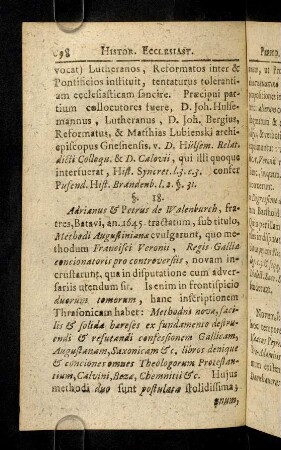 98 HISTOR. ECCLESIAST.
vocat) Lutheranos, Reformatos inter &
Pontificios instituit, tentaturus toleranti-
am ecclesiasticam sancire. Præcipui par-
tium collocutores fuere, D. Joh. Hülse-
mannus, Lutheranus, D. Joh. Bergius,
Reformatus, & Matthias Lubienski archi-
episcopus Gnesnensis. v. D. Hülsem. Relat.
dicti Colloqu. & D. Calovii, qui illi quoque
interfuerat, Hist. Syncret. l. 3. c. 3. confer
Pufend. Hist. Brandenb. l. 2. §. 31.
§. 18.
Adrianus & Petrus de Walenburch, fra-
tres, Batavi, an. 1645. tractatum, sub titulo,
Methodi Augustinianæ evulgarunt, quo me-
thodum Francisci Veronii, Regis Galliæ
concionatoris pro controversiis, novam in-
crustarunt, qua in disputatione cum adver-
sariis utendum sit. Is enim in frontispicio
duorum tomorum, hanc inscriptionem
Thrasonicam habet: Methodus nova, faci-
lis & solida hæreses ex fundamento destru-
endi & refutandi confessionem Gallicam,
Augustanam, Saxonicam &c. libros denique
& conciones omnes Theologorum Protestan-
tium, Calvini, Bezæ, Chemnitii &c. Hujus
methodi duo sunt postulata stolidissima;
unum,